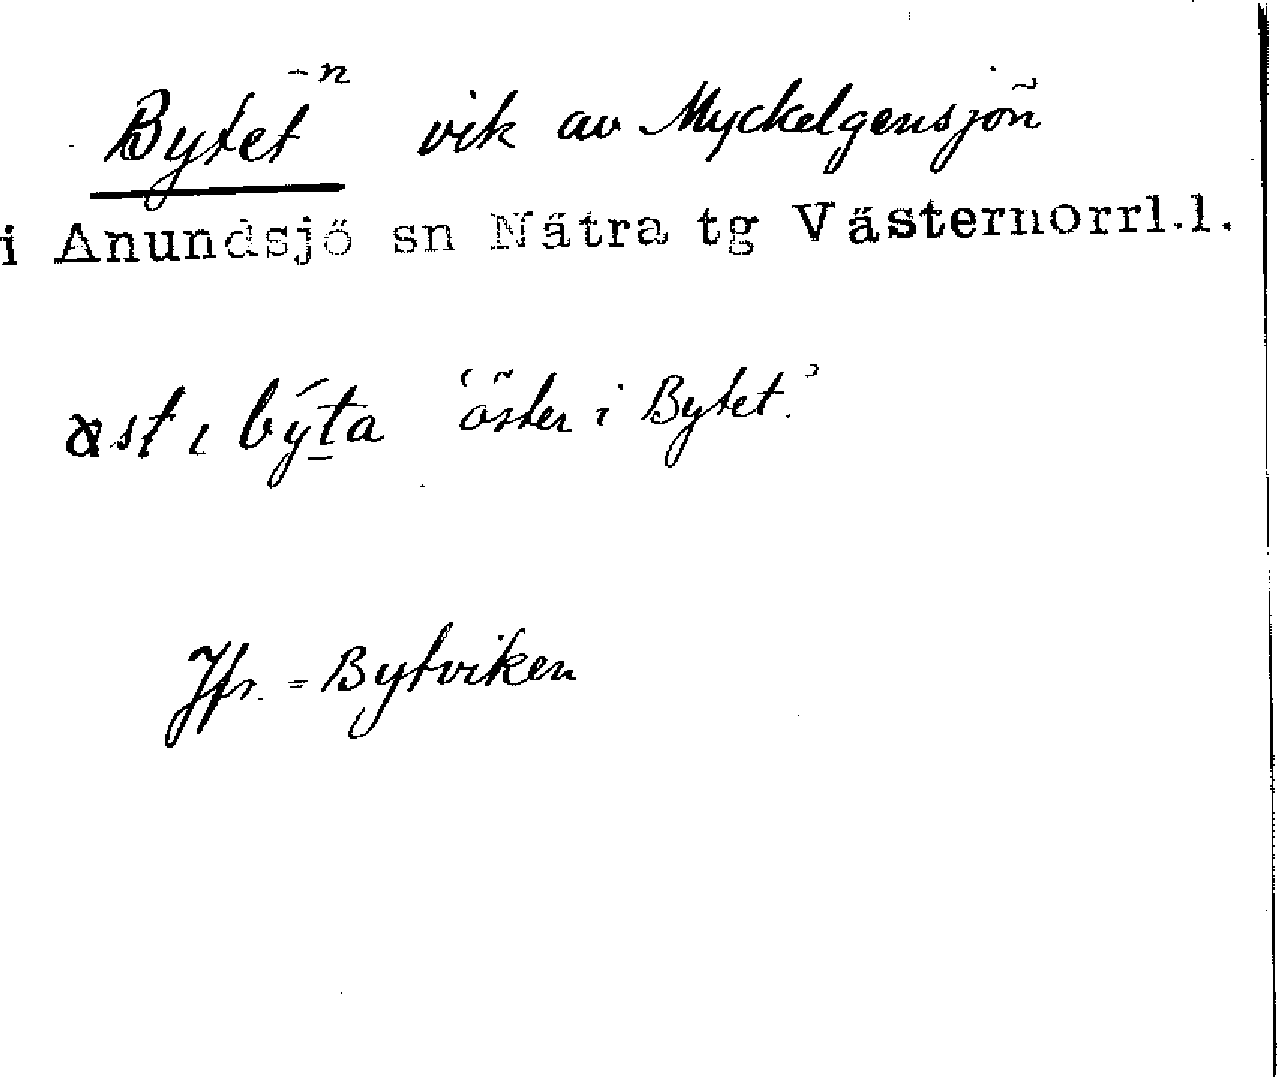 Bytet -n vik av Myckelgensjön
i Anundsjö sn Nätra tg Västernorrl.l.
ast ɩ být̲a ‘öster i Bytet.’
Jfr. = Bytviken